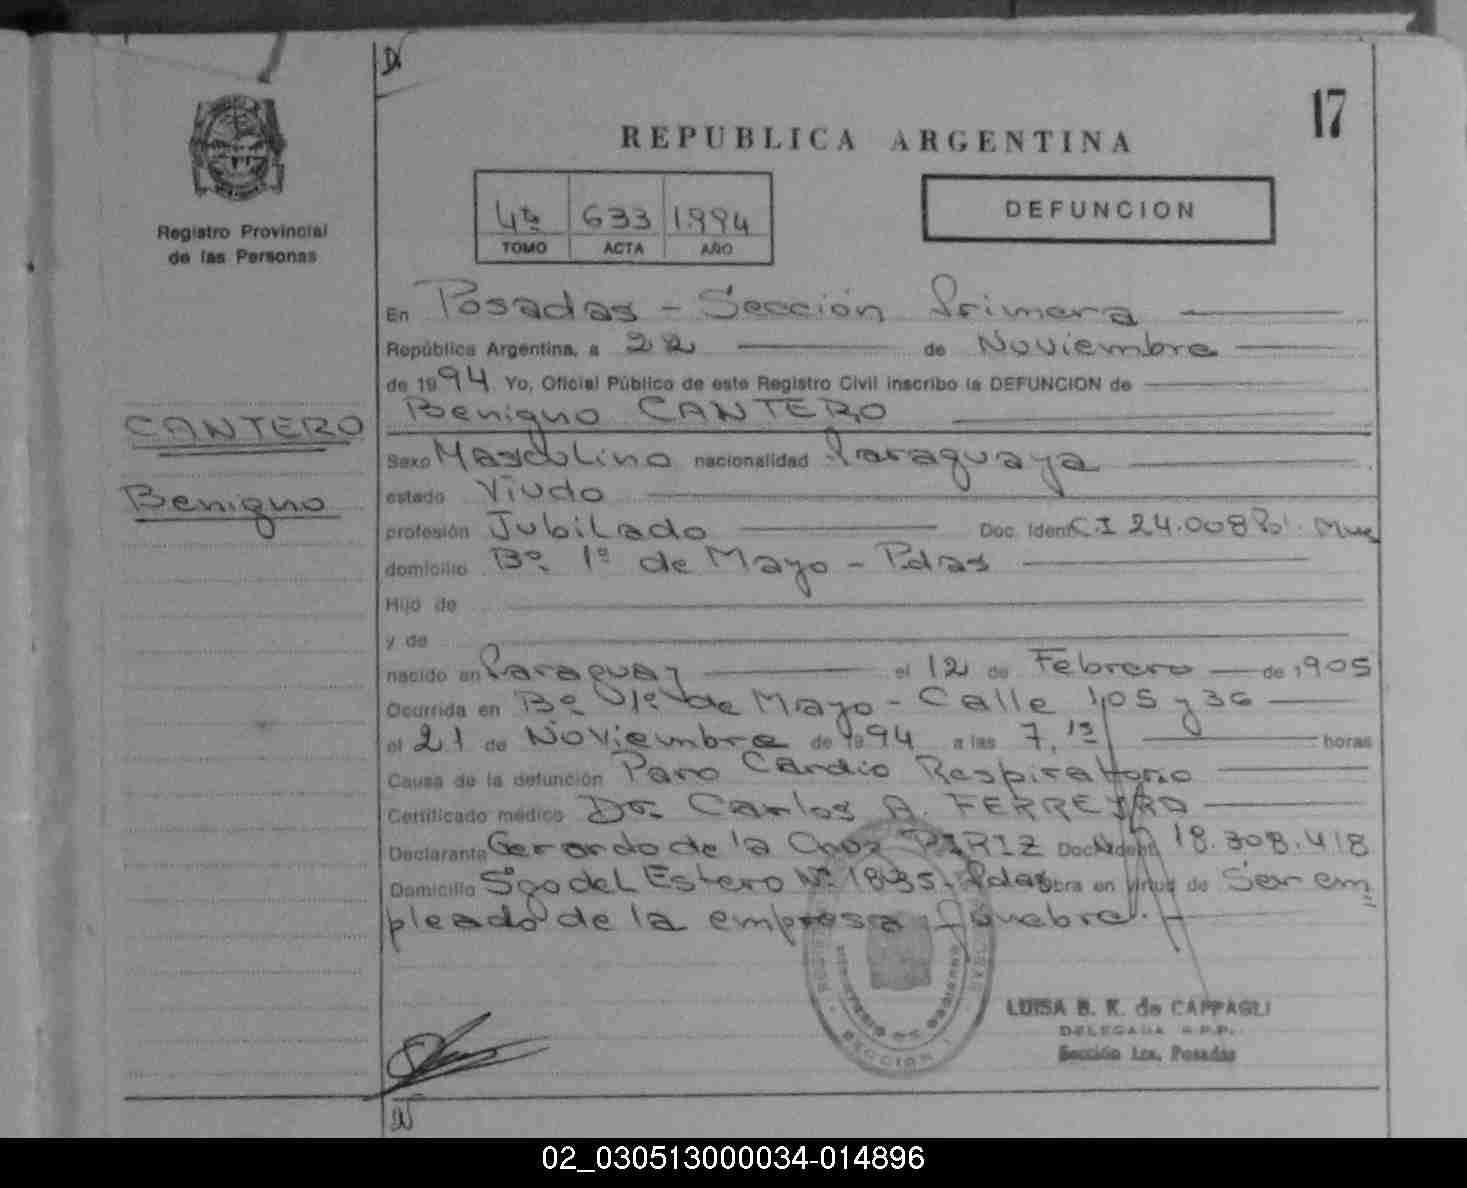 17
REPUBLICA ARGENTINA
4to 633 1.994
TOMO ACTA AÑO
DEFUNCION
Registro Provincial
de las Personas
CANTERO
Benigno
En Posadas - Sección Primera
República Argentina, a 22 de Noviembre
de 1994 Yo, Oficial Público de este Registro Civil inscribo la DEFUNCION de
Benigno CANTERO
Sexo Masculino nacionalidad Paraguaya
estado Viudo
profesión Jubilado Doc. Ident. CI 24.008 Pol. Mnes
domicilio Bº. 1º de Mayo - Pdas
Hijo de
y de
nacido en Paraguay el 12 de Febrero de 1905
Ocurrida en Bº. 1º de Mayo - Calle 105 y 36
el 21 de Noviembre de 1994 a las 7,15 horas
Causa de la defunción Paro Cardio Respiratorio
Certificado médico Dr. Carlos A. FERREYRA
Declarante Gerardo de la Cruz PIRIZ Doc. Ident. 18.308.418
Domicilio Sgo del Estero Nº 1835 - Pdas obra en virtud de Ser em
pleado de la empresa fúnebre.
LUISA B. K. de CAPPAGLI
DELEGADA R.P.P.
Sección 1ra. Posadas
SECCION 1
02_030513000034-014896